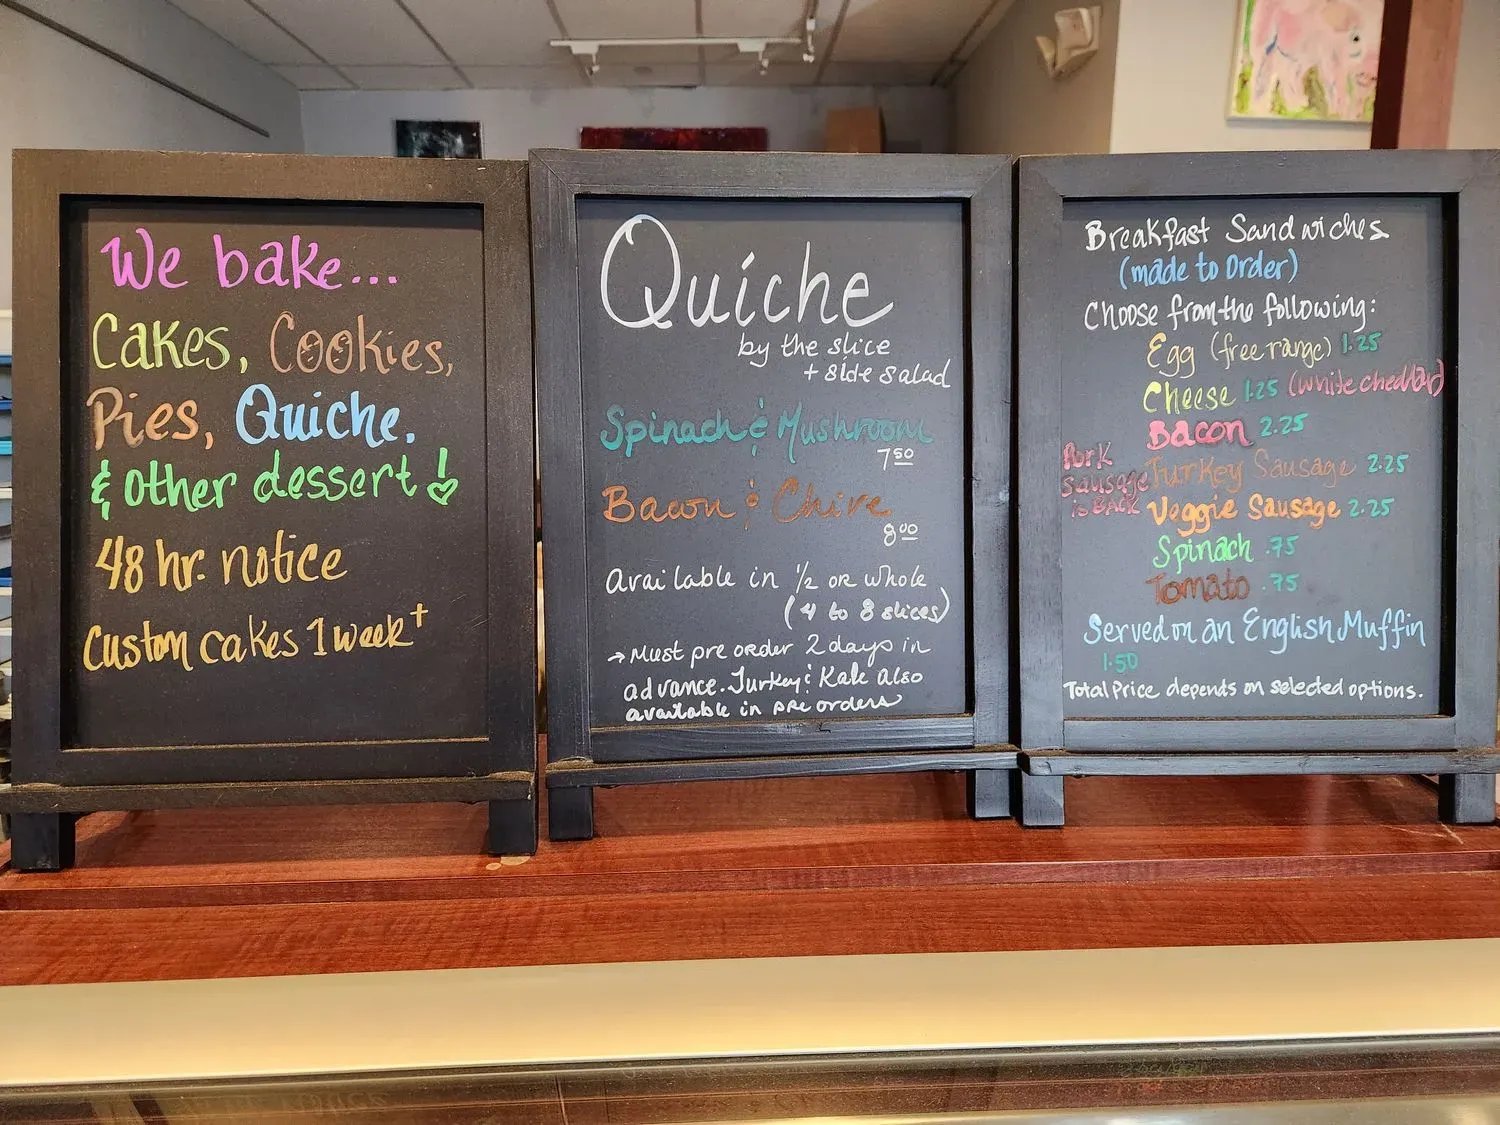 We bake...
Cakes, Cookies,
Pies, Quiche,
& other dessert!
48 hr. notice
Custom cakes 1 week+
Quiche
by the slice
+ side salad
Spinach & Mushroom
7.50
Bacon & Chive
8.00
Available in 1/2 or whole
(4 to 8 slices)
→ Must pre order 2 days in
advance. Turkey & Kale also
available in pre orders
Breakfast Sandwiches
(made to Order)
Choose from the following:
Egg (free range) 1.25
Cheese 1.25 (white cheddar)
Bacon 2.25
Pork
Sausage
is BACK
Turkey Sausage 2.25
Veggie Sausage 2.25
Spinach .75
Tomato .75
Served on an English Muffin
1.50
Total Price depends on selected options.